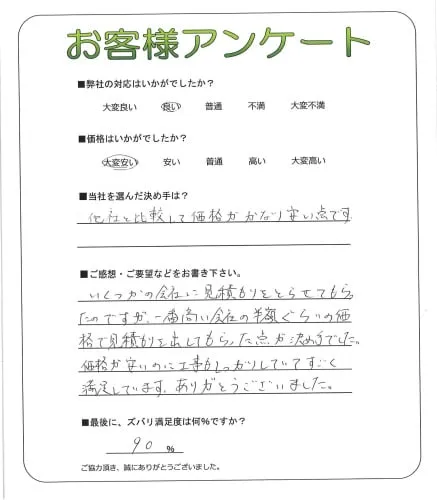 お客様アンケート
■弊社の対応はいかがでしたか？
大変良い 良い 普通 不満 大変不満
■価格はいかがでしたか？
大変安い 安い 普通 高い 大変高い
■当社を選んだ決め手は？
他社と比較して価格がかなり安い点です
■ご感想・ご要望などをお書き下さい。
いくつかの会社に見積もりをとらせてもらっ
たのですが、一番高い会社の半額ぐらいの価
格で見積もりを出してもらった点が決め手でした。
価格が安いのに工事もしっかりしていてすごく
満足しています。ありがとうございました。
■最後に、ズバリ満足度は何%ですか？
90 %
ご協力頂き、誠にありがとうございました。